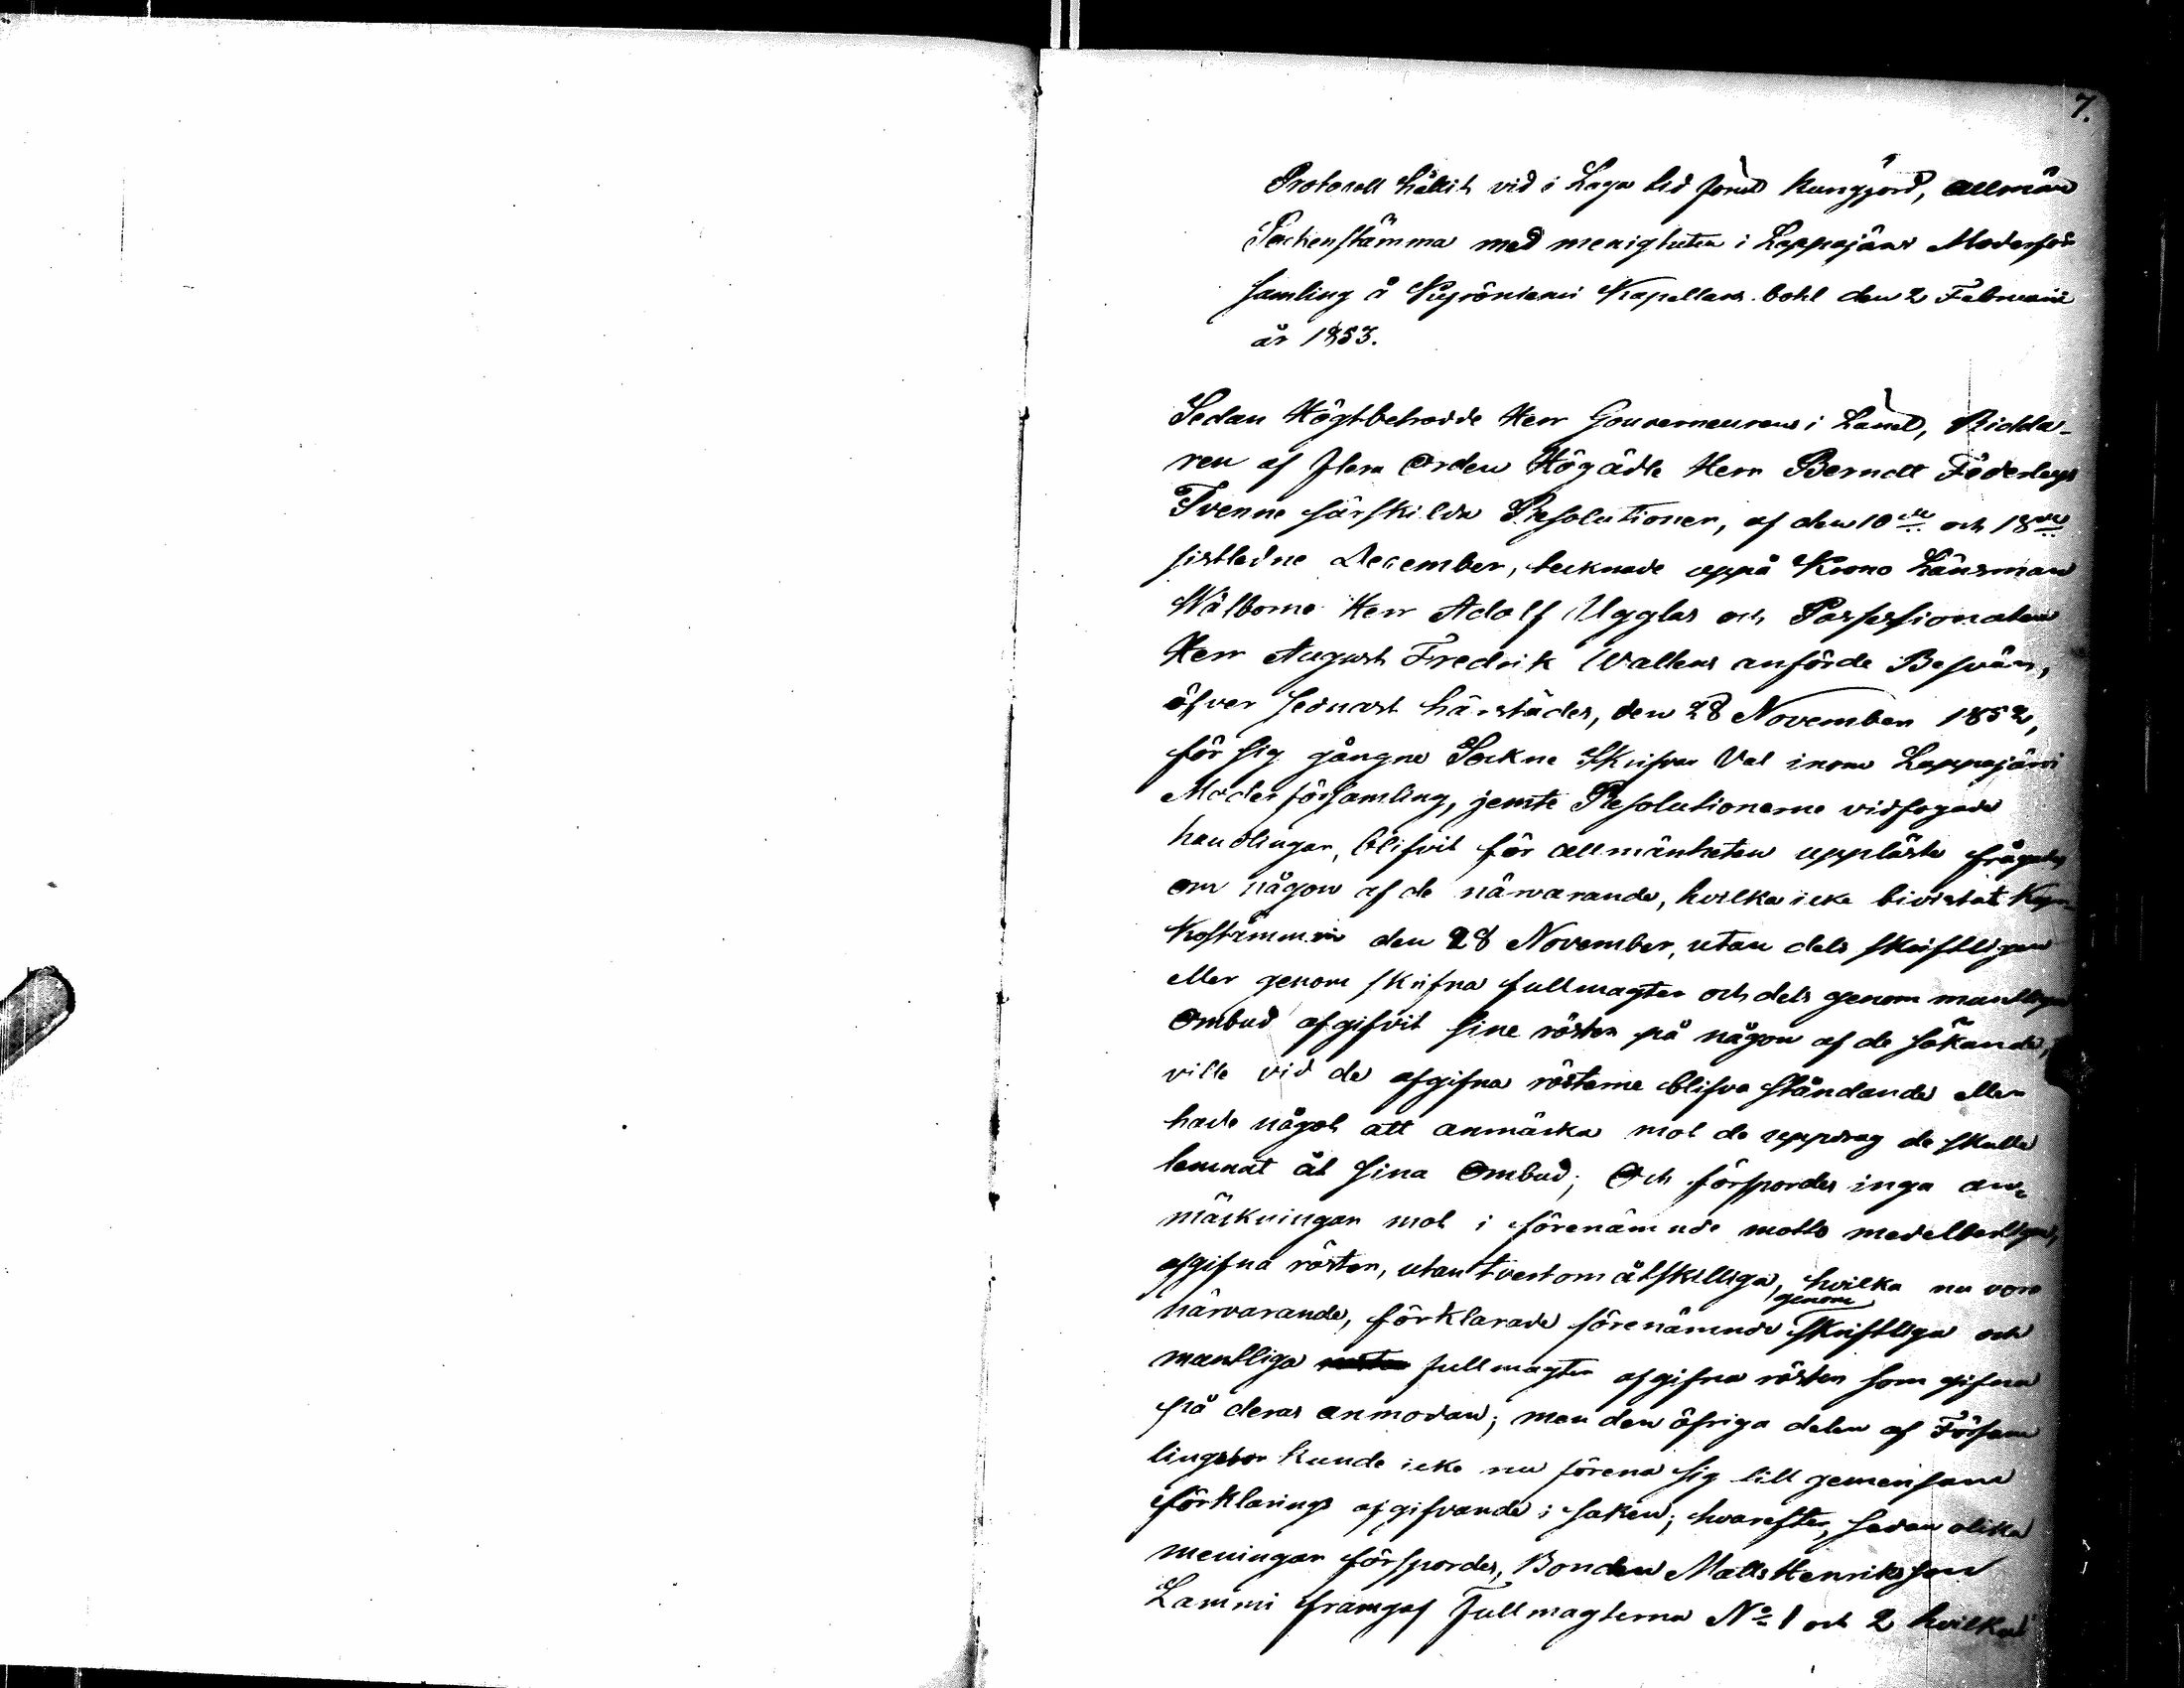 7.
Protocoll hållit vid i Laga tid förut kungjord, allmän
Sockenstämma med menigheten i Lappajärvi Moderför
samling å Kyröniemi Kapellans bohl den 2 Februarii
år 1853.
Sedan Högtbetrodde Herr Gouverneurens i Länet, Ridda-
ren af flera Orden Högädle Herr Berndt Federleys
Tvenne särskilda Resolutioner, af den 10de och 18de
sistledne December, tecknade uppå Krono Länsman
Wälborne Herr Adolf Ugglas och Possessionaten
Herr August Fredrik Wallens anförde Besvär,
öfver sednast härstädes, den 28 November 1852,
för sig gångne Sockne Skrifvar Val inom Lappajärvi
Moderförsamling, jemte Resolutionerne vidfogade
handlingar, blifvit för allmänheten uppläste frågades
om någon af de närvarande, hvilka icke bivistat Kyr-
kostämman den 28 November, utan dels skriftligen
eller genom skrifna fullmagter och dels genom muntliga
Ombud afgifvit sine röster på någon af de sökande,
ville vid de afgifna rösterne blifva ståndande eller
hade något att anmärka mot de uppdrag de skulle
lemnat åt sina Ombud; Och förspordes inga an-
märkningar mot i förenämnde motto medelbarligen
afgifna röster, utan tvertom åtskilliga, hvilka nu voro
närvarande, förklarade förenämnde genom skriftliga och
muntliga fullmagter afgifna röster som gifna
på deras anmodan; men den öfriga delen af Försam
lingsbor kunde icke nu förena sig till gemensam
förklarings afgifvande i saken; hvarefter, sedan olika
meningar förspordes, Bonden Matts Henriksson
Lammi framgaf Fullmagterna No 1 och 2 hvilka